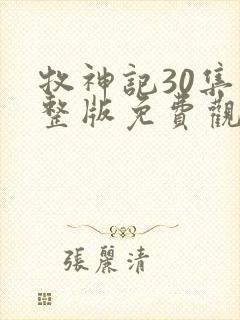 牧神記30集
整版免費觀
張麗清